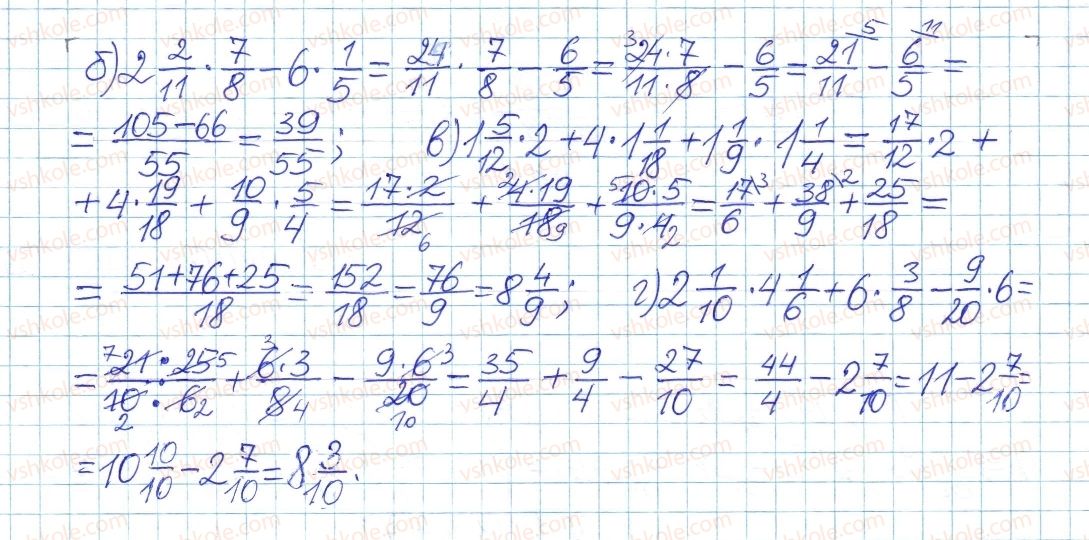 б) 2 2/11 · 7/8 − 6 · 1/5 = 24/11 · 7/8 − 6/5 = ³24·7/11·8 − 6/5 = 21/11 \5 − 6/5 \11 =
= 105−66/55 = 39/55; в) 1 5/12 · 2 + 4 · 1 1/18 + 1 1/9 · 1 1/4 = 17/12 · 2 +
+ 4 · 19/18 + 10/9 · 5/4 = 17·2/12 6 + ²4·19/18 9 + ⁵10·5/9·4 2 = 17/6 \3 + 38/9 \2 + 25/18 =
= 51+76+25/18 = 152/18 = 76/9 = 8 4/9; г) 2 1/10 · 4 1/6 + 6 · 3/8 − 9/20 · 6 =
= ⁷21·25⁵/10 2 · 6 2 + ³6·3/8 4 − 9·6³/20 10 = 35/4 + 9/4 − 27/10 = 44/4 − 2 7/10 = 11 − 2 7/10 =
= 10 10/10 − 2 7/10 = 8 3/10.
vshkole.com